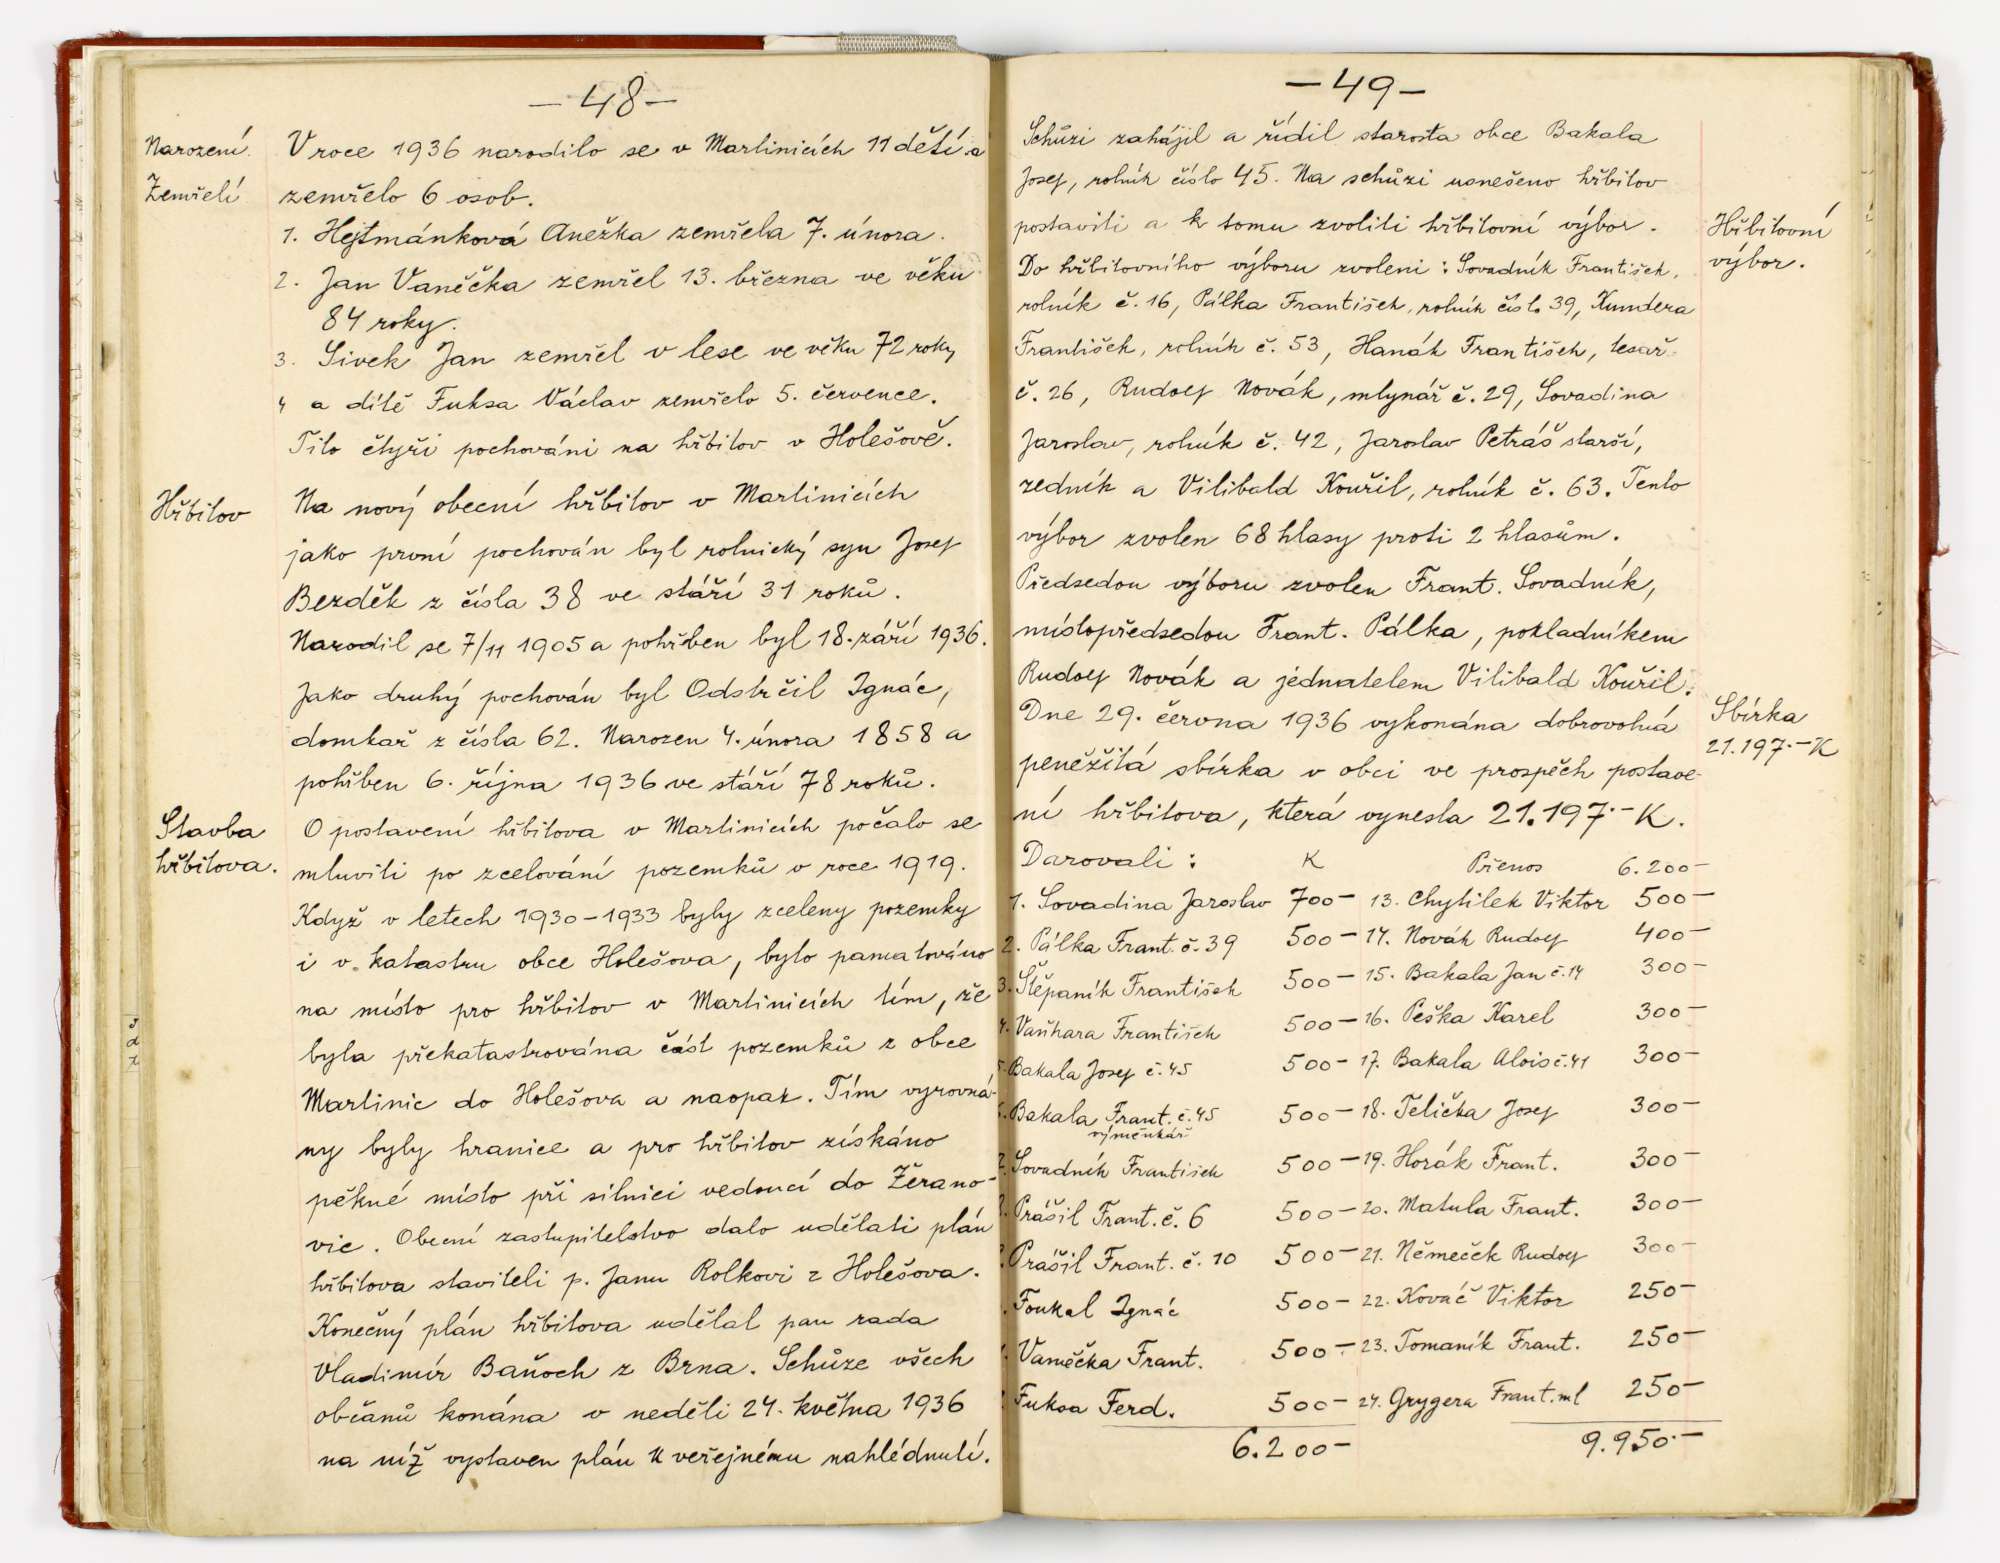 — 48 —
Narození.
Zemřelí
V roce 1936 narodilo se v Martinicích 11 dětí a
zemřelo 6 osob.
1. Hejtmánková Anežka zemřela 7. února.
2. Jan Vaněčka zemřel 13. března ve věku
84 roky.
3. Sivek Jan zemřel v lese ve věku 72 roky
4 a dítě Fuksa Václav zemřelo 5. července.
Tito čtyři pochováni na hřbitov v Holešově.
Hřbitov
Na nový obecní hřbitov v Martinicích
jako první pochován byl rolnický syn Josef
Bezděk z čísla 38 ve stáří 31 roků.
Narodil se 7/11 1905 a pohřben byl 18. září 1936.
Jako druhý pochován byl Odstrčil Ignác,
domkař z čísla 62. Narozen 4. února 1858 a
pohřben 6. října 1936 ve stáří 78 roků.
Stavba
hřbitova.
O postavení hřbitova v Martinicích počalo se
mluviti po zcelování pozemků v roce 1919.
Když v letech 1930-1933 byly zceleny pozemky
i v katastru obce Holešova, bylo pamatováno
na místo pro hřbitov v Martinicích tím, že
byla překatastrována část pozemků z obce
Martinic do Holešova a naopak. Tím vyrovná-
ny byly hranice a pro hřbitov získáno
pěkné místo při silnici vedoucí do Žerano-
vic. Obecní zastupitelstvo dalo udělati plán
hřbitova staviteli p. Janu Rolkovi z Holešova.
Konečný plán hřbitova udělal pan rada
Vladimír Baňoch z Brna. Schůze všech
občanů konána v neděli 24. května 1936
na níž vystaven plán k veřejnému nahlédnutí.
— 49 —
Schůzi zahájil a řídil starosta obce Bakala
Josef, rolník číslo 45. Na schůzi usnešeno hřbitov
postaviti a k tomu zvoliti hřbitovní výbor.
Hřbitovní
výbor.
Do hřbitovního výboru zvoleni: Sovadník František,
rolník č. 16, Pálka František, rolník číslo 39, Kundera
František, rolník č. 53, Hanák František, tesař
č. 26, Rudolf Novák, mlynář č. 29, Sovadina
Jaroslav, rolník č. 42, Jaroslav Petráš starší,
zedník a Vilibald Kouřil, rolník č. 63. Tento
výbor zvolen 68 hlasy proti 2 hlasům.
Předsedou výboru zvolen Frant. Sovadník,
místopředsedou Frant. Pálka, pokladníkem
Rudolf Novák a jednatelem Vilibald Kouřil.
Sbírka
21.197.— K
Dne 29. června 1936 vykonána dobrovolná
peněžitá sbírka v obci ve prospěch postave-
ní hřbitova, která vynesla 21.197.— K.
Darovali: K Přenos 6.200—
1. Sovadina Jaroslav 700— 13. Chytilek Viktor 500—
2. Pálka Frant. č. 39 500— 14. Novák Rudolf 400—
3. Štěpaník František 500— 15. Bakala Jan č. 14 300—
4. Vaňhara František 500— 16. Peška Karel 300—
5. Bakala Josef č. 45 500— 17. Bakala Alois č. 41 300—
6. Bakala Frant. č. 45 500— 18. Telička Josef 300—
výměnkář
7. Sovadník František 500— 19. Horák Frant. 300—
Prášil Frant. č. 6 500— 20. Matula Frant. 300—
Prášil Frant. č. 10 500— 21. Němeček Rudolf 300—
Foukal Ignác 500— 22. Kováč Viktor 250—
Vaněčka Frant. 500— 23. Tomaník Frant. 250—
Fuksa Ferd. 500— 24. Grygera Frant. ml 250—
6.200— 9.950.—